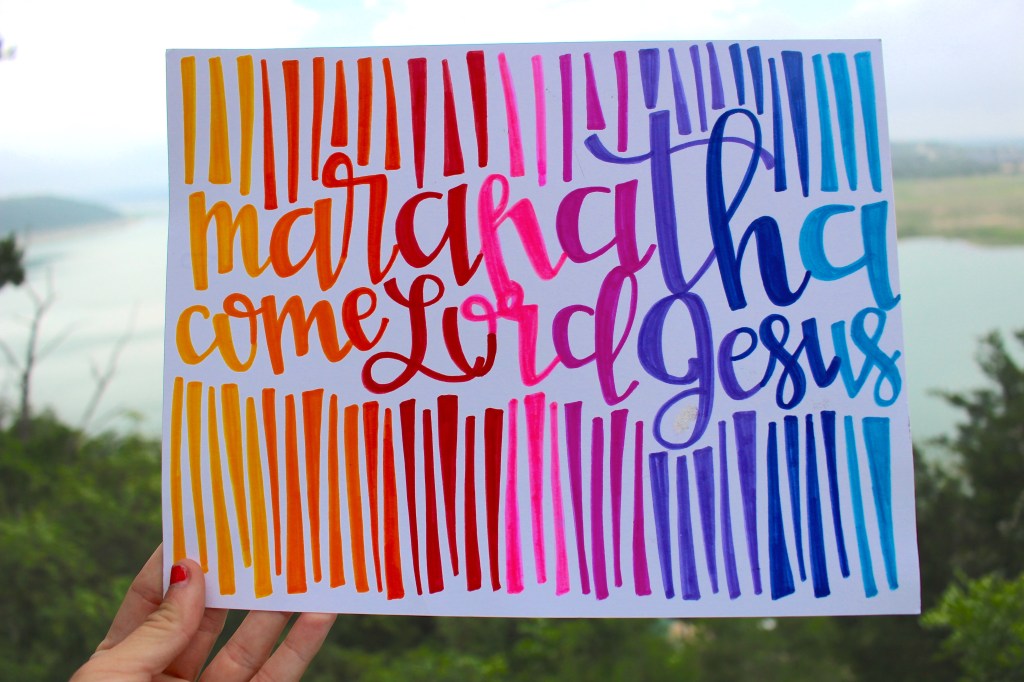 maranatha
come Lord Jesus